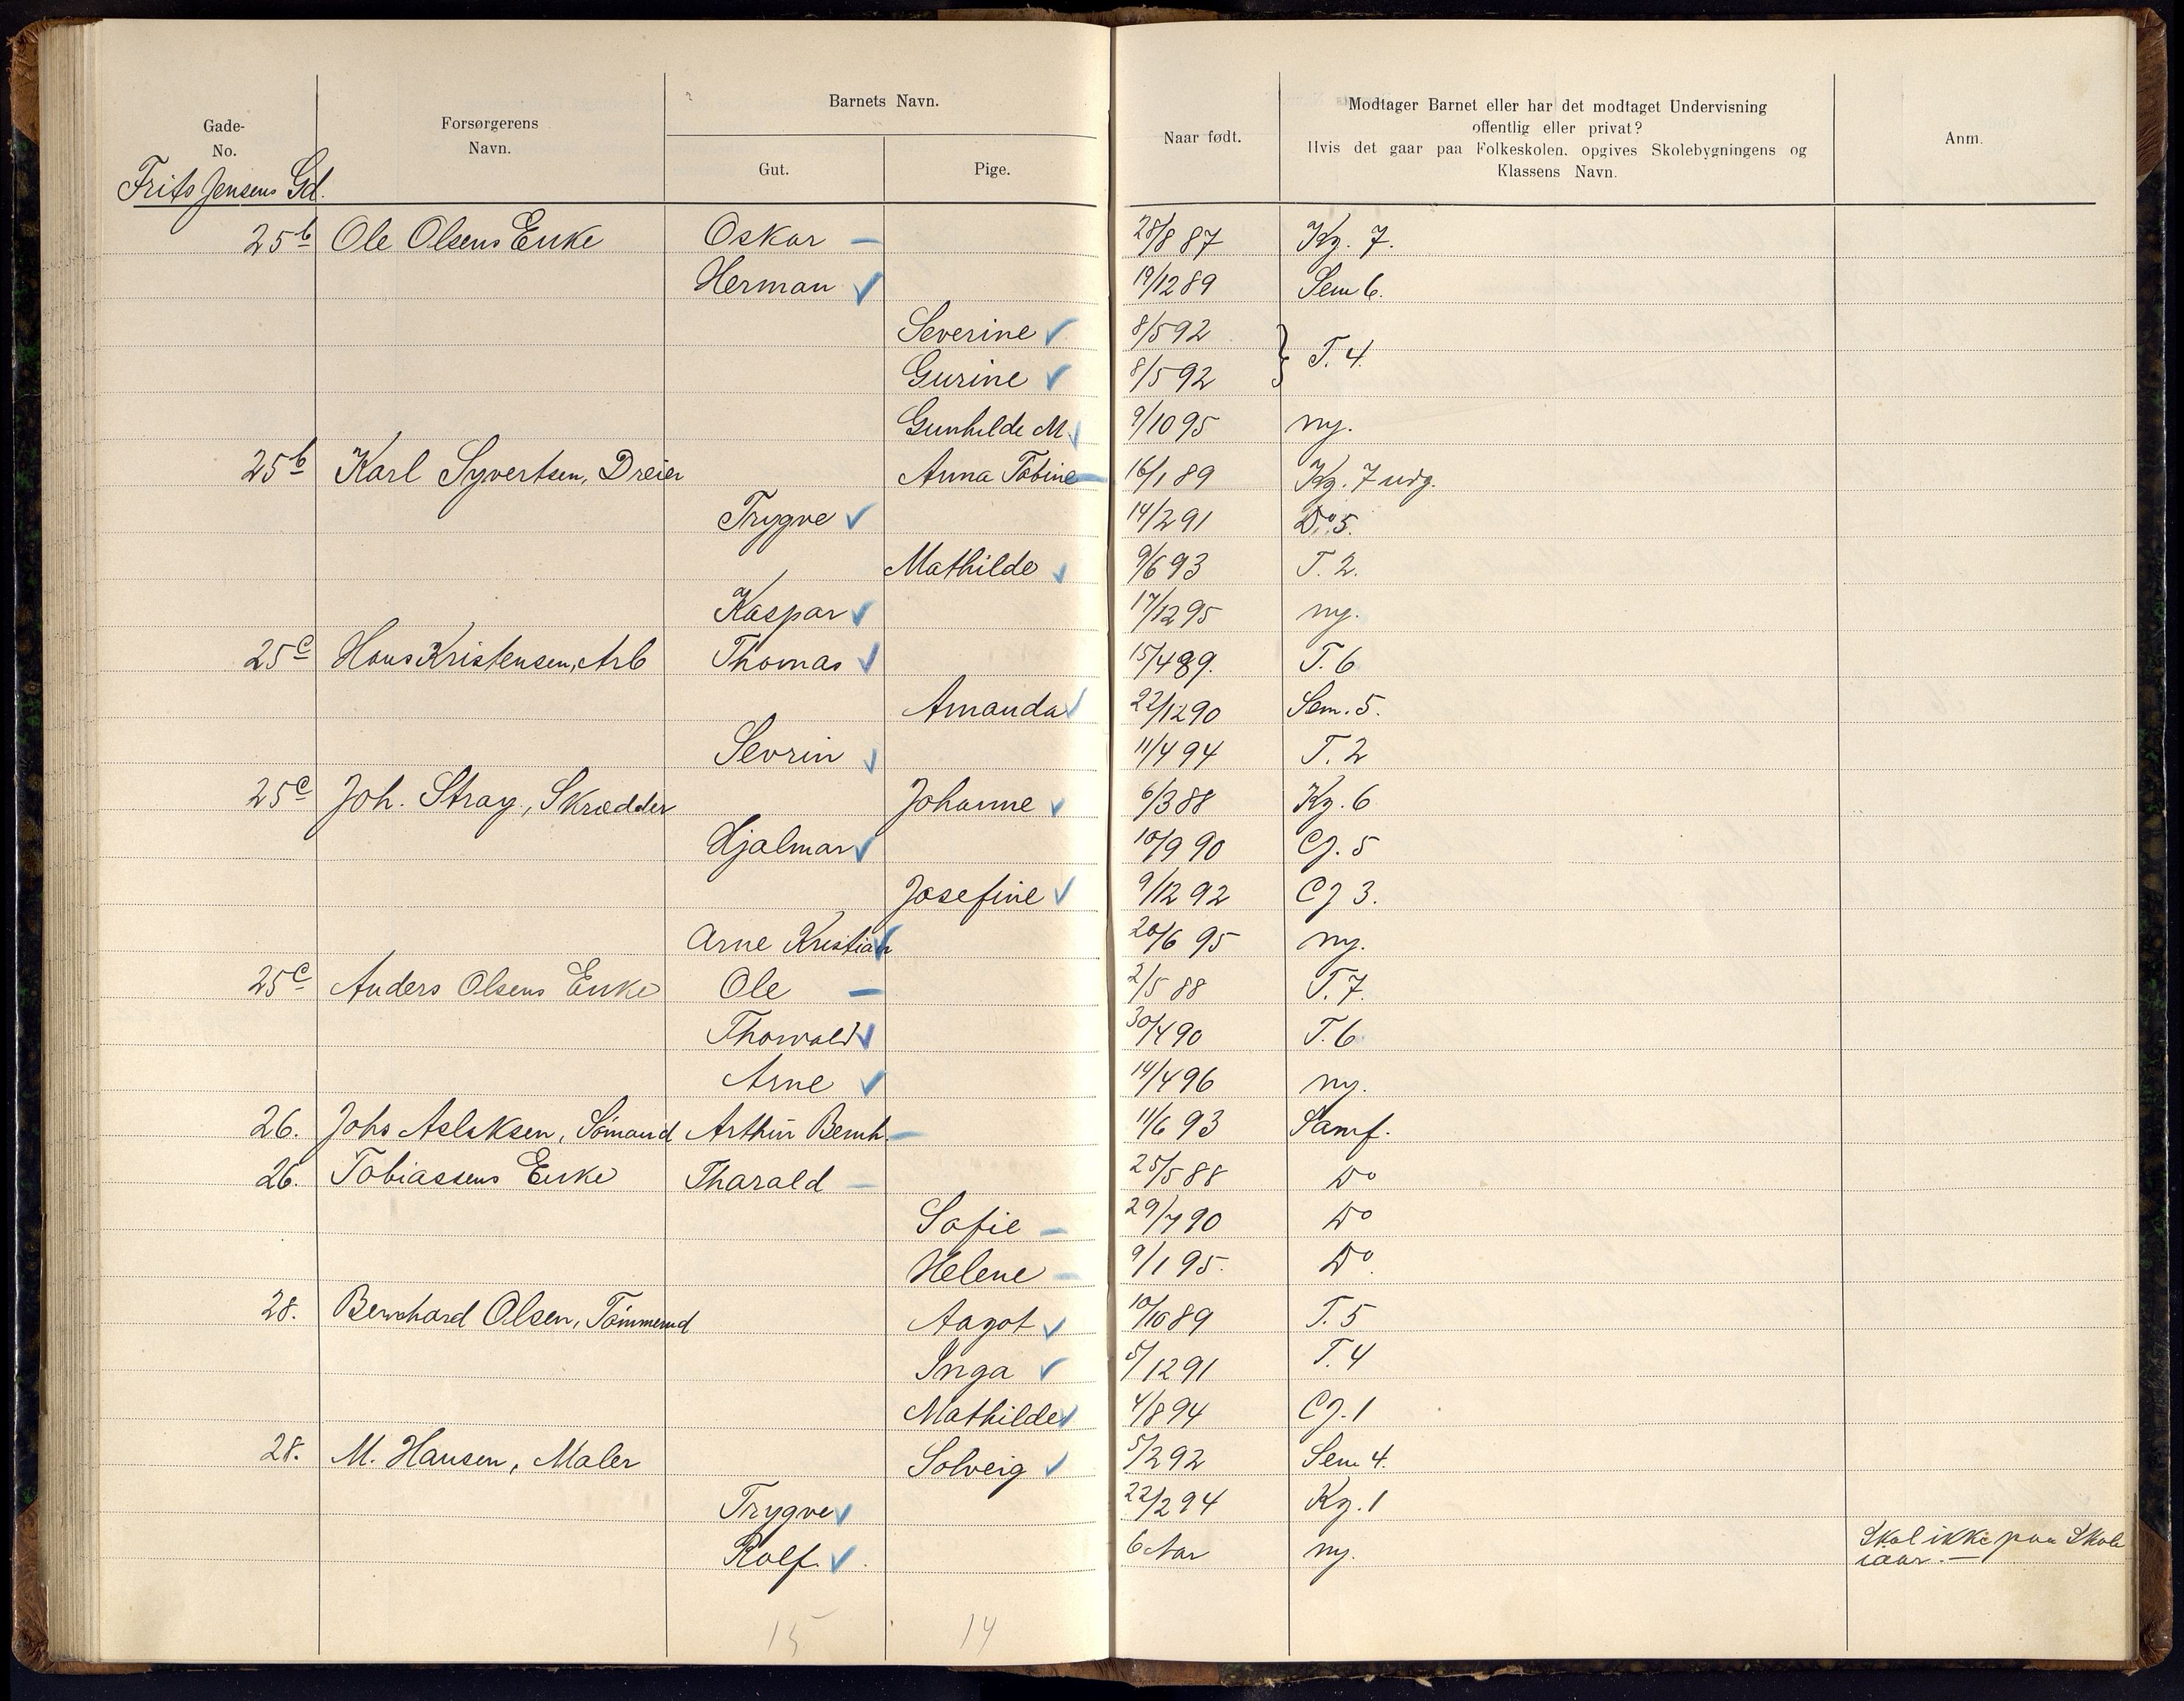 Gade-
No.
Forsørgerens
Navn.
Barnets Navn.
Gut.
Pige.
Naar født.
Modtager Barnet eller har det modtaget Undervisning
offentlig eller privat?
Hvis det gaar paa Folkeskolen, opgives Skolebygningens og
Klassens Navn.
Anm.
Frits Jensens Gd.
25b Ole Olsens Enke Oskar – 28/8 87 Kg. 7.
Herman ✓ 19/12 89 Sem 6.
Severine ✓ 8/5 92 } T. 4.
Gurine ✓ 8/5 92
Gunhilde M. ✓ 9/10 95 ny.
25b Karl Syvertsen, Dreier Anna Tobine – 16/1 89 Kg. 7 udg.
Trygve ✓ 14/2 91 Do 5.
Mathilde ✓ 9/6 93 T. 2.
Kaspar ✓ 17/12 95 ny.
25c Hans Kristensen, Arb Thomas ✓ 15/4 89. T. 6
Amanda ✓ 22/12 90 Sem. 5.
Sevrin ✓ 11/4 94 T. 2
25c Joh. Stray, Skrædder Johanne ✓ 6/3 88 Kg. 6
Hjalmar ✓ 10/9 90 CJ. 5
Josefine ✓ 9/12 92 CJ 3.
Arne Kristian ✓ 20/6 95 ny.
25c Anders Olsens Enke Ole – 2/5 88 T. 7.
Thorvald ✓ 30/4 90 T. 6
Arne ✓ 14/4 96 ny.
26. Johs Aslaksen, Sömand Arthur Bernh. – 11/6 93 Samf.
26. Tobiassens Enke Tharald – 25/5 88 Do
Sofie – 29/7 90 Do
Helene – 9/1 95. Do.
28. Bernhard Olsen, Tömmermd Aagot ✓ 10/10 89 T. 5
Inga ✓ 5/12 91 T. 4
Mathilde ✓ 4/8 94 CJ. 1
28. M. Hansen, Maler Solveig ✓ 5/2 92 Sem 4.
Trygve ✓ 22/2 94 Kg. 1
Rolf. ✓ 6 Aar ny. Skal ikke paa Skole
iaar. –
15 14